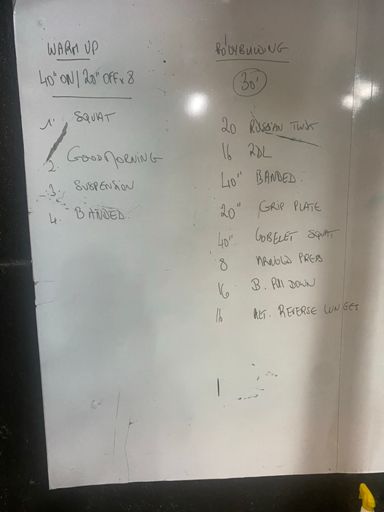 WARM UP
40" ON/20" OFF x 8
1. SQUAT
2. GOODMORNING
3. SUSPENSION
4. BANDED
BODYBUILDING
30'
20 RUSSIAN TWIST
16 RDL
40" BANDED
20" GRIP PLATE
40" GOBELET SQUAT
8 ARNOLD PRESS
16 B. PULL DOWN
16 ALT. REVERSE LUNGES